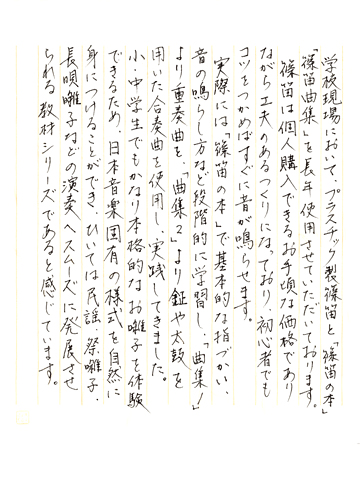 学校現場において、プラスチック製篠笛と「篠笛の本」
「篠笛曲集」を長年使用させていただいております。
篠笛は個人購入できるお手頃な価格であり
ながら工夫のあるつくりになっており、初心者でも
コツをつかめばすぐに音が鳴らせます。
実際には「篠笛の本」で基本的な指づかい、
音の鳴らし方など段階的に学習し、「曲集1」
より重奏曲を、「曲集2」より鉦や太鼓を
用いた合奏曲を使用し、実践してきました。
小・中学生でもかなり本格的なお囃子を体験
できるため、日本音楽固有の様式を自然に
身につけることができ、ひいては民謡、祭囃子、
長唄囃子などの演奏へスムーズに発展させ
られる教材シリーズであると感じています。